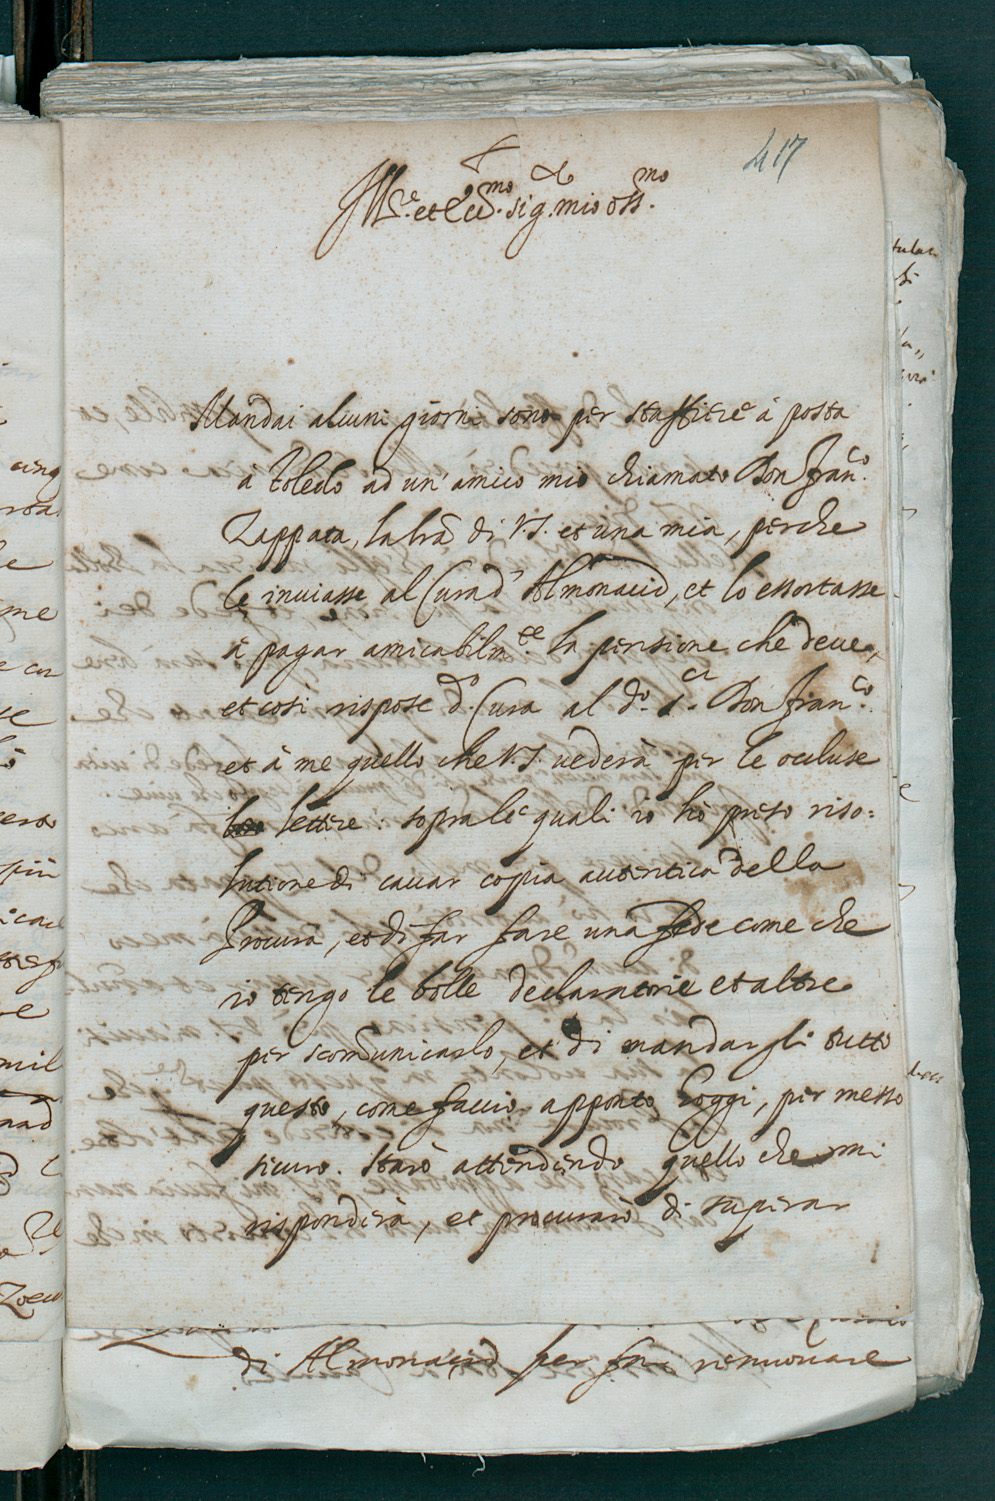 417
Ill.re et Ecc.mo sig. mio oss.mo
Mandai alcuni giorni sono per staffiere à posta
a Toledo ad un' amico mio chiamato Don Fran.co
Zappata, la lrã di V.S. et una mia, perche
le inviasse al Cura d' Almonacid, et lo essortasse
à pagar amicabilm.te la pensione che deve,
et cosi rispose d.o Cura al d.o s.r Don Fran.co
et à me quello che V.S. vederà per le occluse
lettere: sopra le quali io hò preso riso=
lutione di cavar copia autentica della
Procura, et di far fare una fede come che
io tengo le bolle declaratorie et altre
per scomunicarlo, et di mandargli tutto
questo, come faccio apponto hoggi, per messo
sicuro. Starò attendendo quello che mi
risponderà, et procurarò di superar
di Almonacid per far rennovare